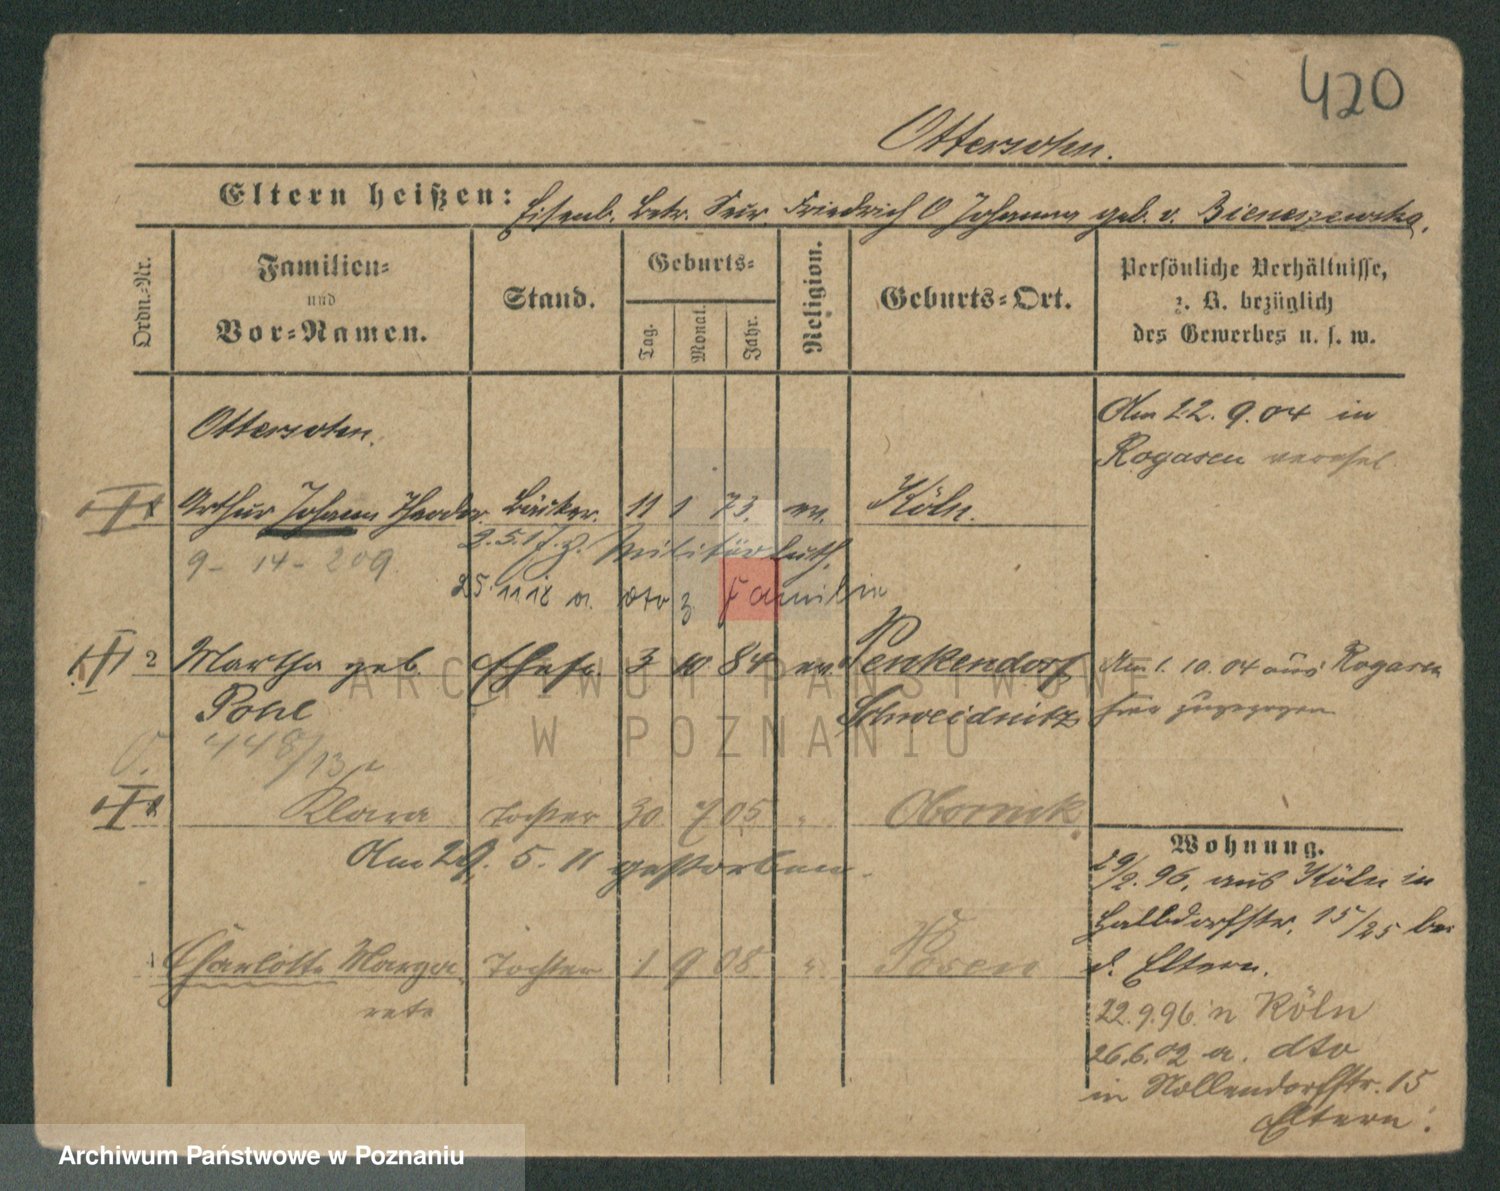 420
Ottersohn.
Eltern heißen: Eisenb. Betr. Secr. Friedrich O Johanna geb. v. Bieneszewska.
Ordn.-Nr.
Familien-
und
Vor-Namen.
Stand.
Geburts-
Tag.
Monat.
Jahr.
Religion.
Geburts-Ort.
Persönliche Verhältnisse,
z. B. bezüglich
des Gewerbes u. s. w.
Ottersohn.
Am 22. 9. 04 in
Rogasen verehel.
Arthur Johann Theodor Bäcker. 11 1 73. ev. Köln.
9 - 14 - 209.
2.5.17. z. Militär
25.11 18 v. dto z Familie
2 Martha geb. Ehefr. 3 10 84 ev. Penkendorf
Pohl Schweidnitz
Am 1. 10. 04 aus Rogasen
hier zugezogen
448/13
Klara Tochter 30 7 05 " Obornik.
Am 29. 5. 11 gestorben.
Charlotte Marga Tochter 1 9 08 " Posen
rete
Wohnung.
29/2. 96. aus Köln in
Halbdorfstr. 15/25 bei
d. Eltern.
22.9.96. n Köln
26.6.02 a. dto
in Nollendorfstr. 15
Eltern.
ARCHIWUM PAŃSTWOWE
W POZNANIU
Archiwum Państwowe w Poznaniu